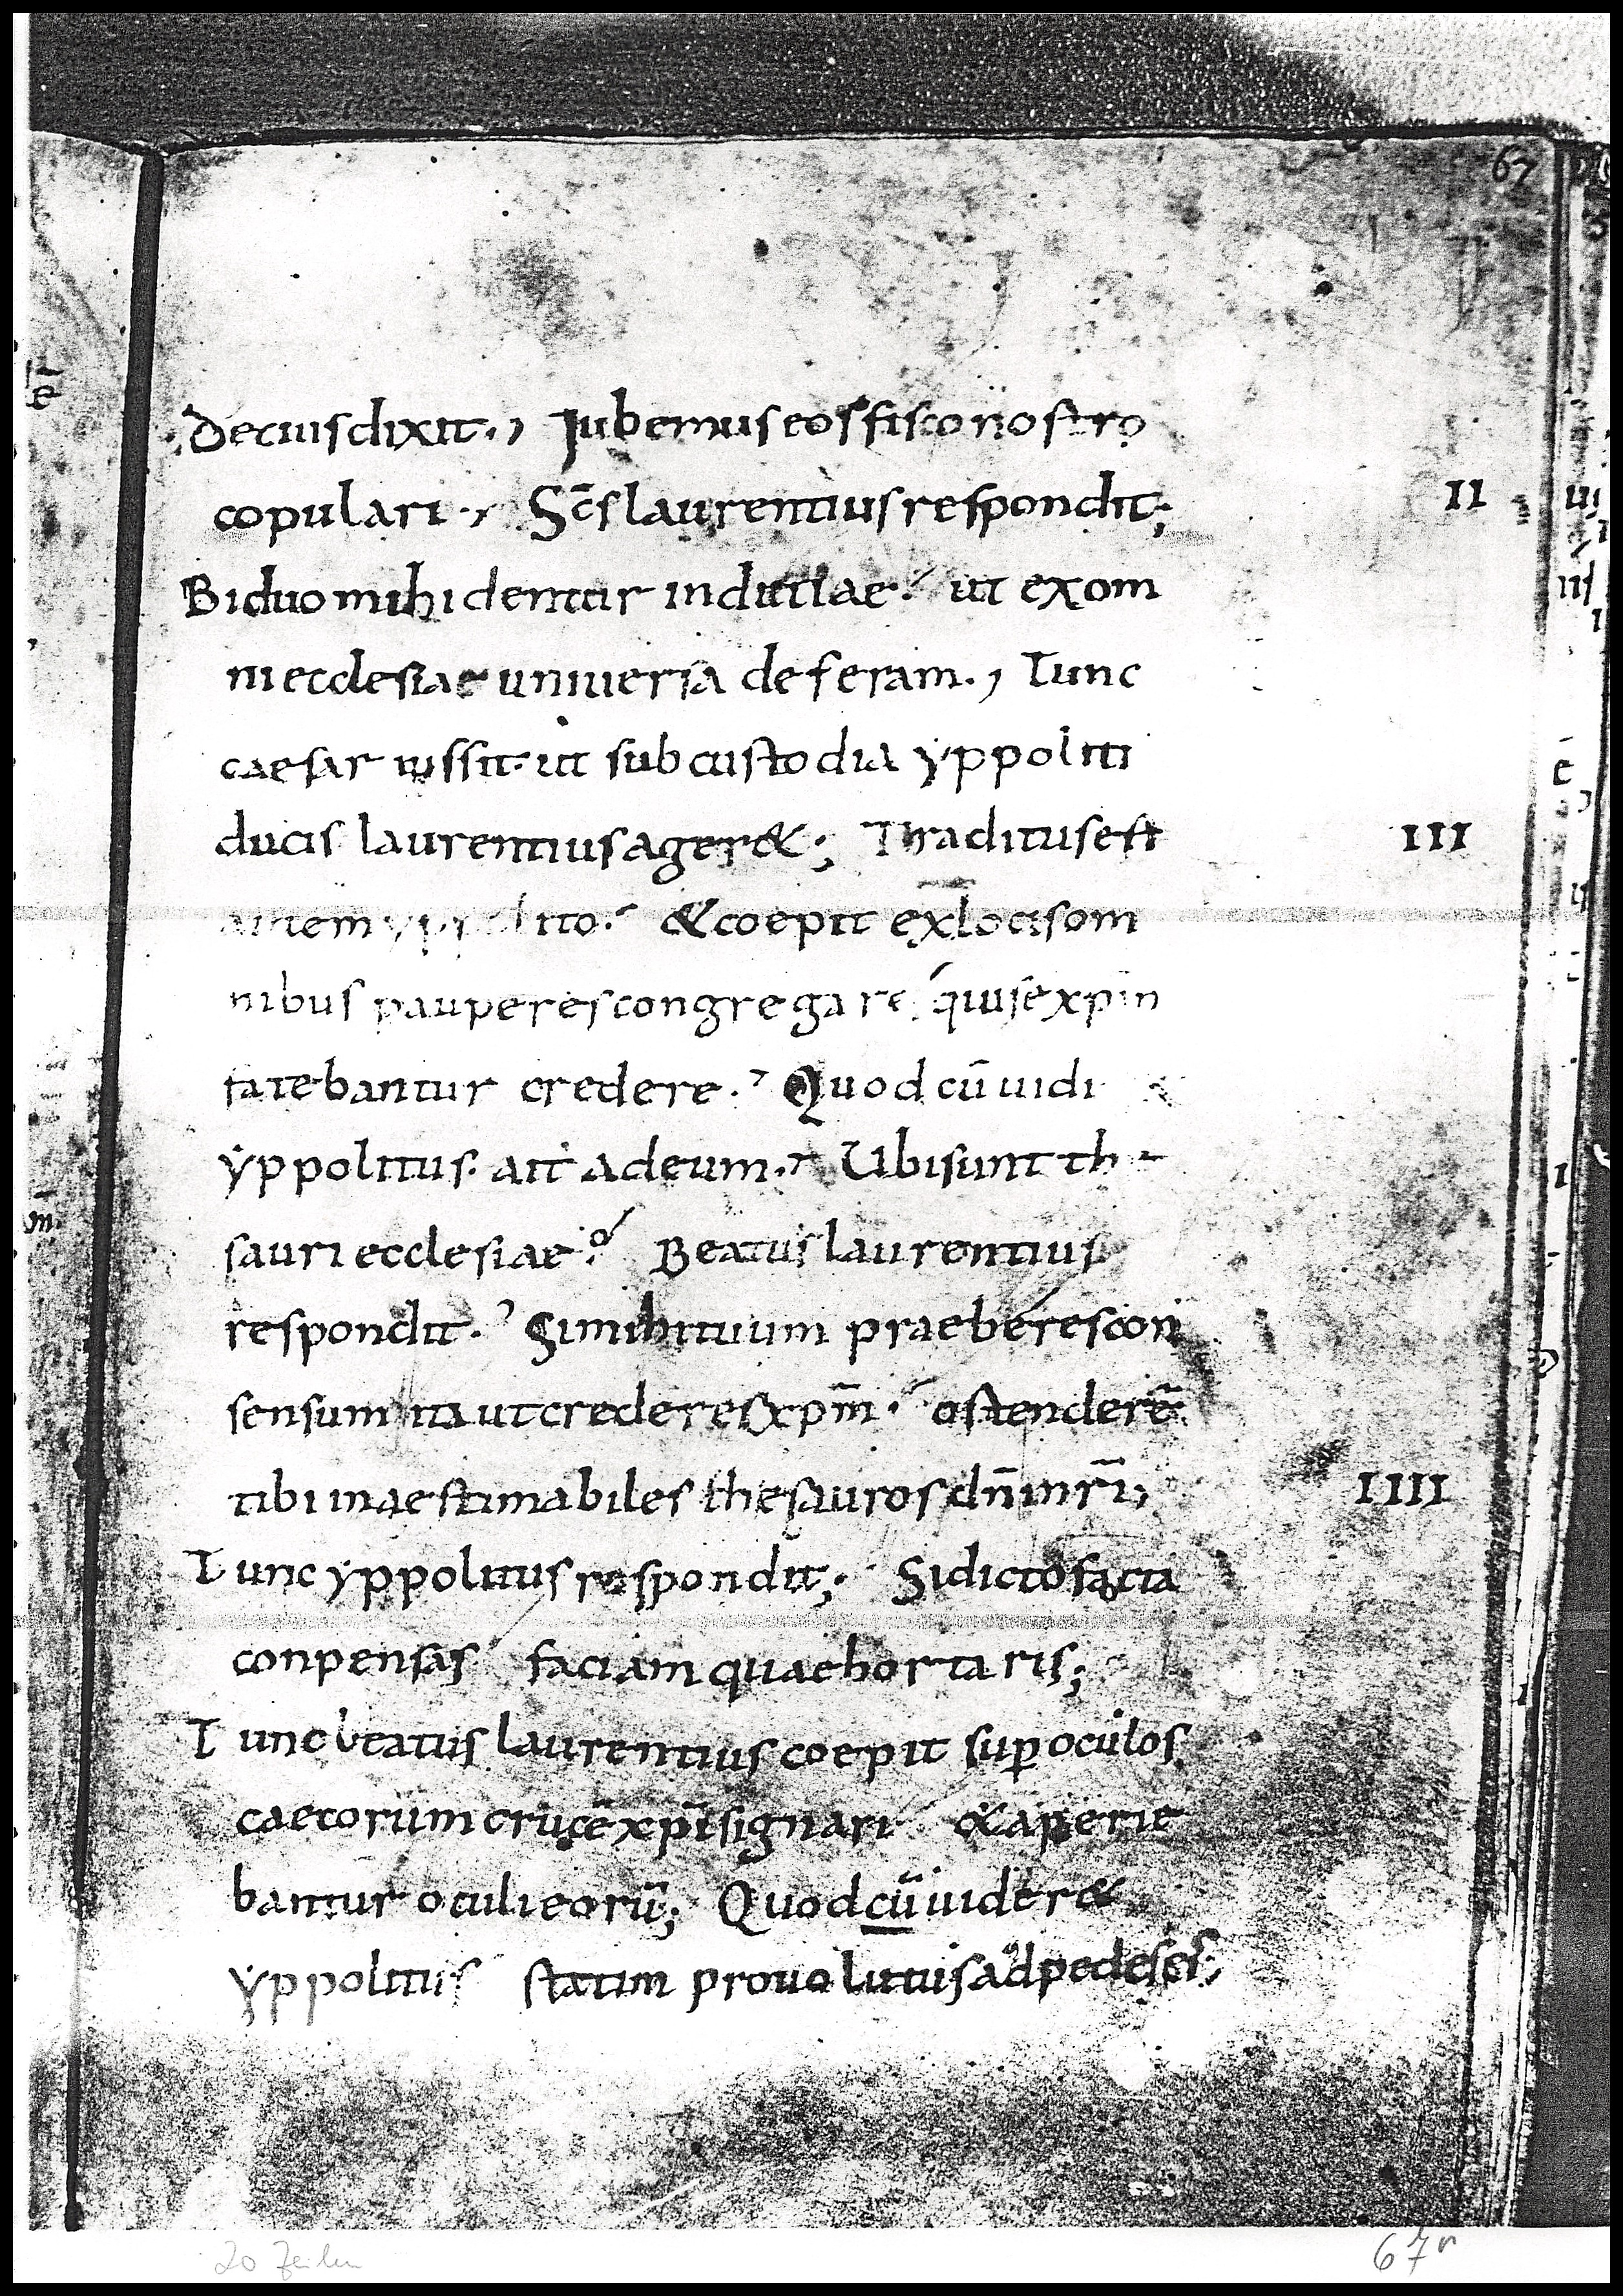 67
Decius dixit., Iubemus eos fisco nostro
copulari., Sc̄s laurentius respondit; II
Biduo mihi dentur indutiae. ut exom
ni ecclesiae universa deferam., Tunc
caesar iussit ut sub custodia yppoliti
ducis laurentius ager&; Traditus est III
autem &coepit ex locis om
nibus pauperes congregare, qui se xp̄m
fatebantur credere. Quod cū uidi
yppolitus. ait ad eum. Ubi sunt the
sauri ecclesiae? Beatus laurentius
respondit. Si mihi tuum praeberes con
sensum ita ut crederes xpm̄. ostenderē
tibi inaestimabiles thesauros dn̄i nr̄i; IIII
Tunc yppolitus respondit; Si dicto facta
conpensas faciam quae hortaris;
Tunc beatus laurentius coepit sup̱ oculos
caecorum crucē xp̄i signari &aperie
bantur oculi eorū; Quod cū uider&
yppolitus statim prouolutus ad pedes ei;
20 Zeilen 67r